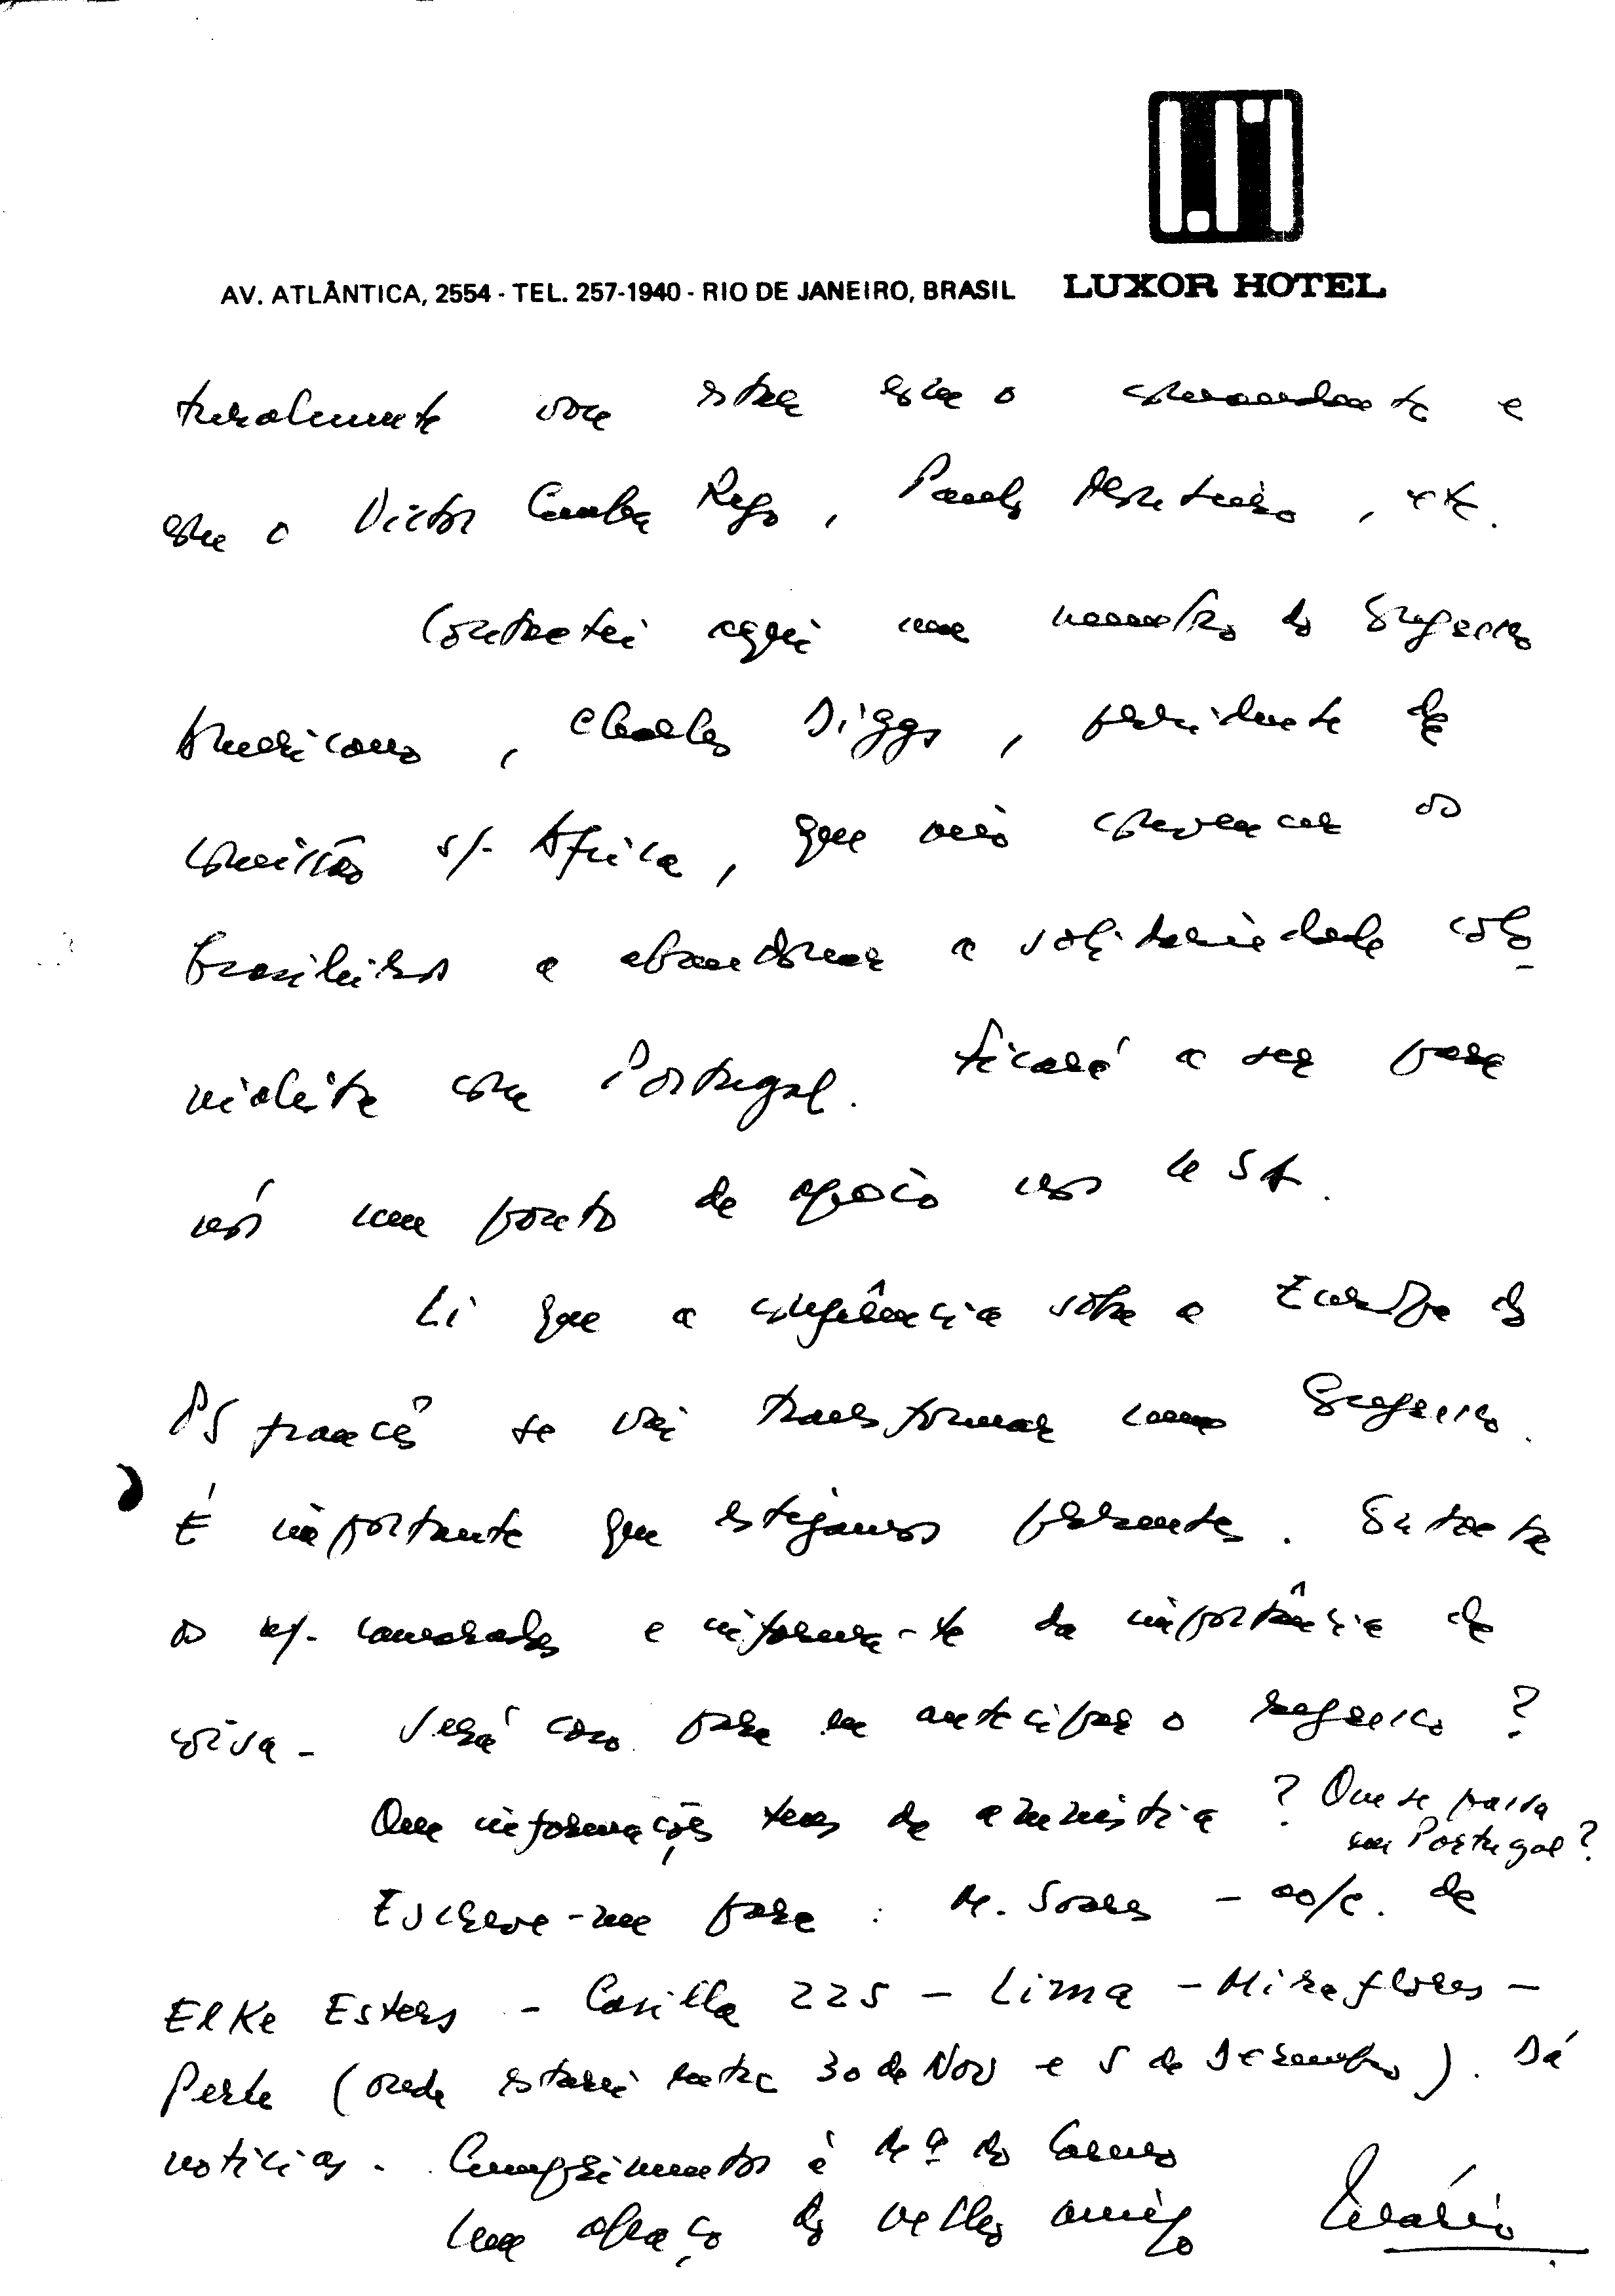 LUXOR HOTEL
AV. ATLÂNTICA, 2554 - TEL. 257-1940 - RIO DE JANEIRO, BRASIL
turalmente vou estar com o comandante e
com o Victor Cunha Rego, Paulo , etc.
Contactei aqui um membro do Congresso
Americano, Charles Diggs, presidente da
comissão s/. Africa, que veio convencer os
brasileiros a abandonar a solidariedade colo-
nialista com Portugal. Ficará a ser para
nós um ponto de apoio nos USA.
Li que a conferência sobre a Europa do
PS francês se vai transformar num Congresso.
É importante que estejamos presentes. Contacta
os n/. camaradas e informa-te da importância da
coisa - Será caso para se antecipar o regresso?
Que informações tens da amnistia? Que se passa
em Portugal?
Escreve-me para: M. Soares - ao/c. de
Elke Esters - Casilla 225 - Lima - Miraflores -
Peru (onde estarei entre 30 de Nov e 5 de Dezembro). Dá
noticias. Cumprimentos à Mª do Carmo
Um abraço do velho amigo Mário